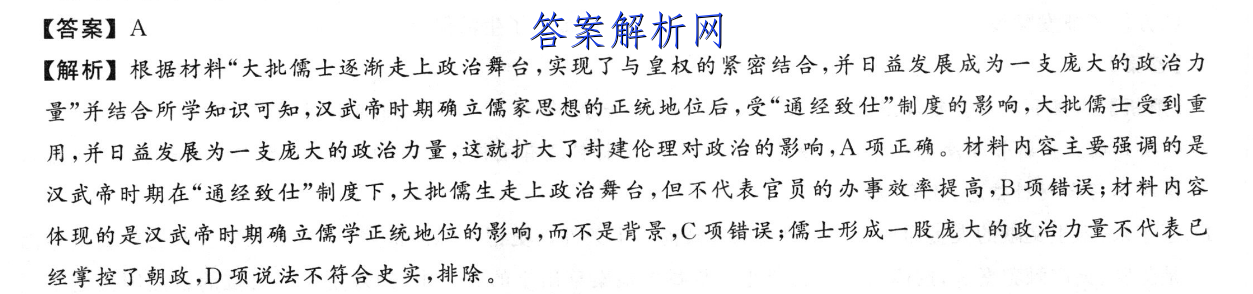 【答案】A
答案解析网
【解析】根据材料“大批儒士逐渐走上政治舞台,实现了与皇权的紧密结合,并日益发展成为一支庞大的政治力
量”并结合所学知识可知,汉武帝时期确立儒家思想的正统地位后,受“通经致仕”制度的影响,大批儒士受到重
用,并日益发展为一支庞大的政治力量,这就扩大了封建伦理对政治的影响,A 项正确。材料内容主要强调的是
汉武帝时期在“通经致仕”制度下,大批儒生走上政治舞台,但不代表官员的办事效率提高,B 项错误;材料内容
体现的是汉武帝时期确立儒学正统地位的影响,而不是背景,C 项错误;儒士形成一股庞大的政治力量不代表已
经掌控了朝政,D 项说法不符合史实,排除。